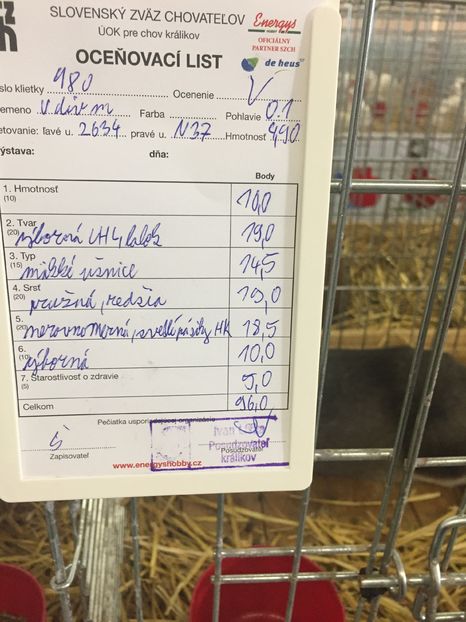 SLOVENSKÝ ZVÄZ CHOVATEĽOV
ÚOK pre chov králikov
Energys
HOBBY
OFICIÁLNY
PARTNER SZCH
OCEŇOVACÍ LIST
de heus
slo klietky 980 Ocenenie V
emeno Vdivm Farba Pohlavie 0.1
etovanie: ľavé u. 2634 pravé u. N37 Hmotnosť 490
ýstava: dňa:
Body
1. Hmotnosť (10) 10,0
2. Tvar (20) výborná LH4, lalok 19,0
3. Typ (15) mäkké ušnice 14,5
4. Srsť (20) pružná, redšia 19,0
5. (20) nerovnomerná, svetlé pásiky HK 18,5
6. (10) výborná 10,0
7. Starostlivosť o zdravie (5) 5,0
Celkom 96,0
Pečiatka usporiadajúcej organizácie
Ivan
Posudzovateľ
králikov
Zapisovateľ
Posudzovateľ
www.energyshobby.cz